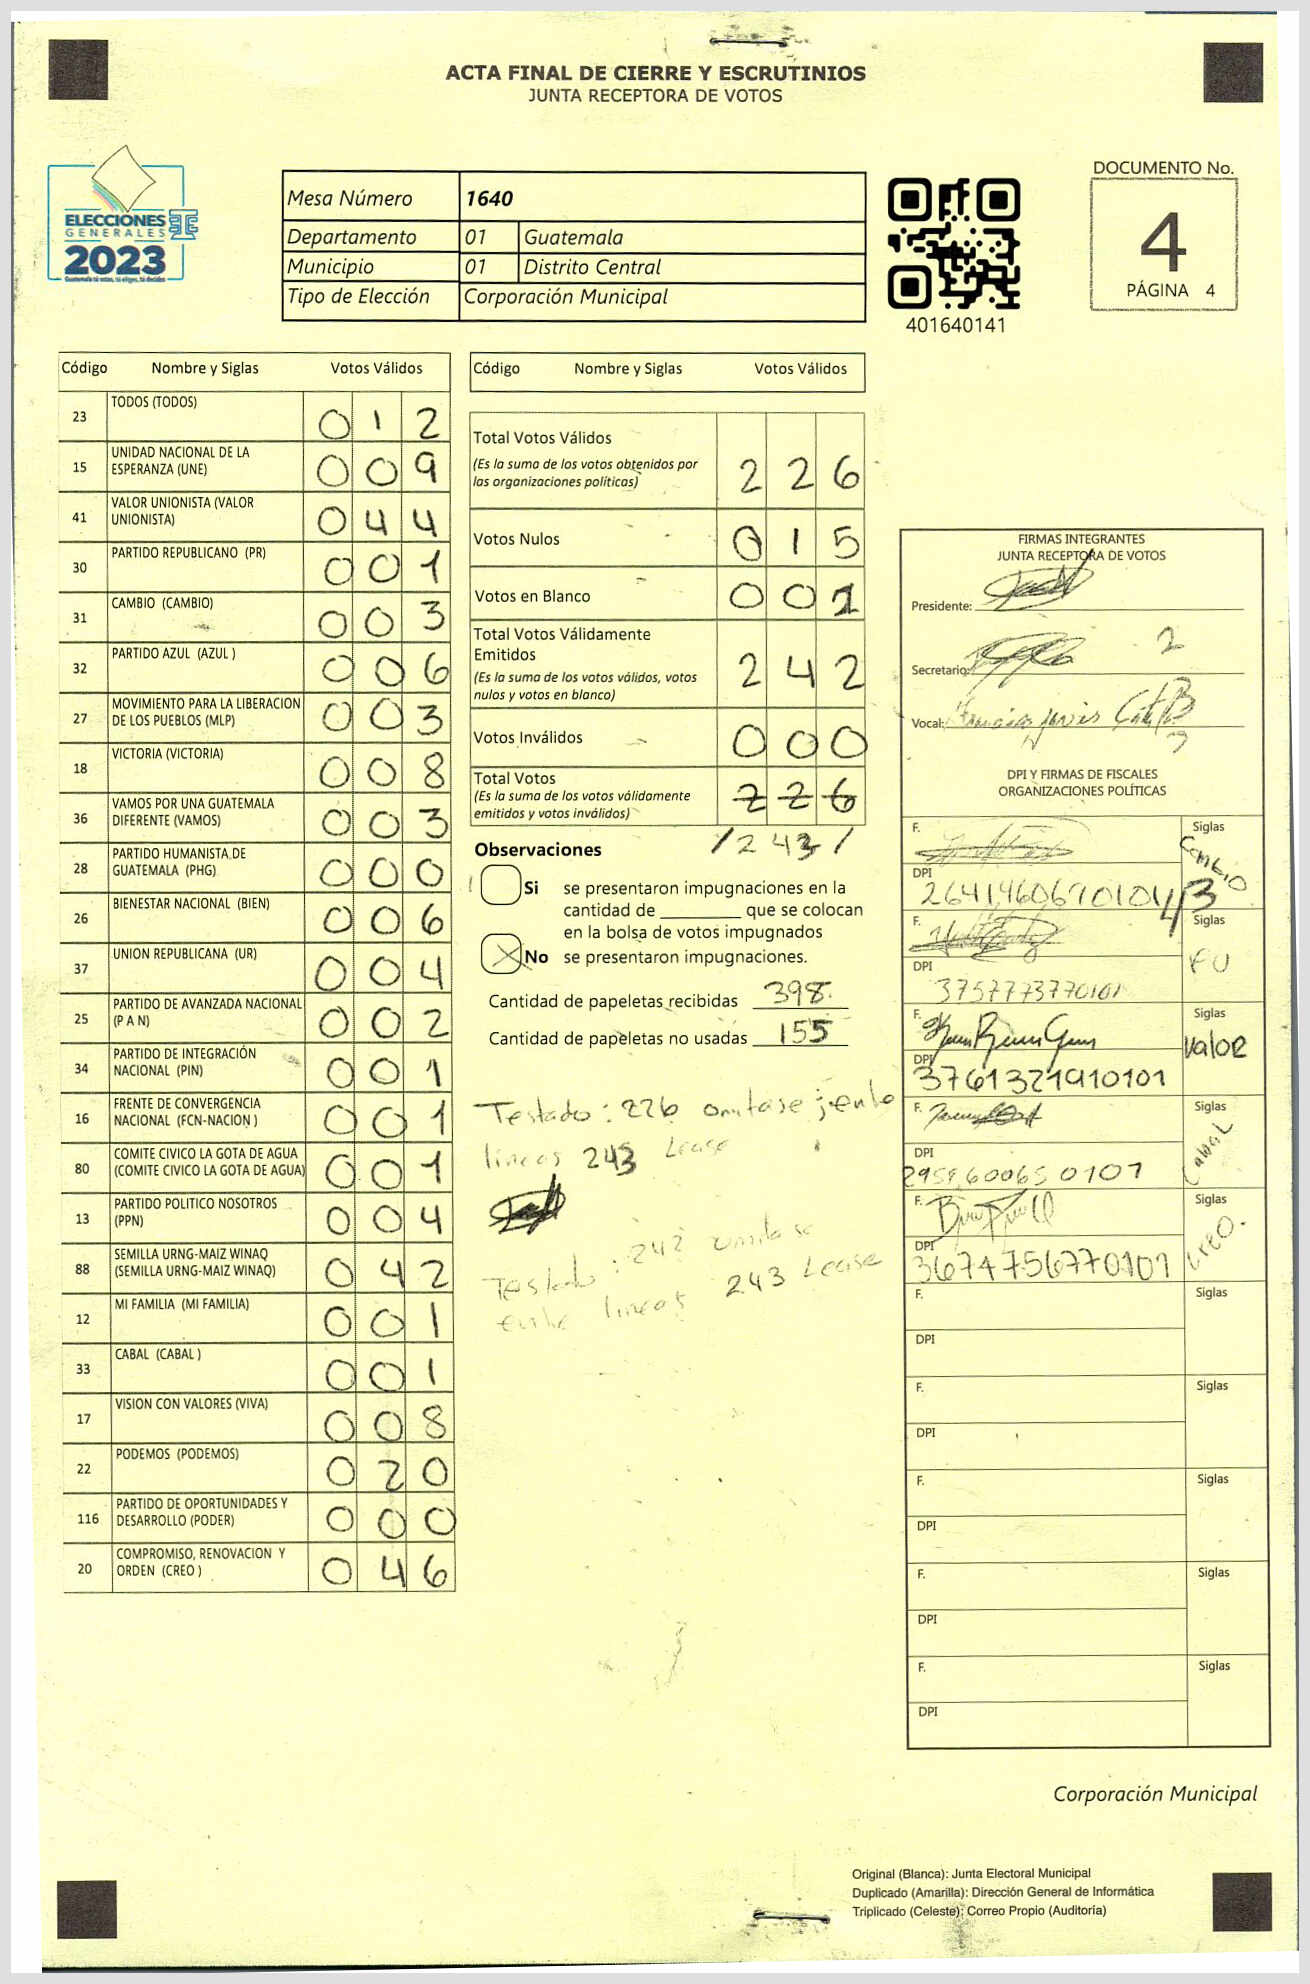 ACTA FINAL DE CIERRE Y ESCRUTINIOS
JUNTA RECEPTORA DE VOTOS
ELECCIONES
GENERALES
2023
Guatemala tú votas, tú eliges, tú decides
Mesa Número 1640
Departamento 01 Guatemala
Municipio 01 Distrito Central
Tipo de Elección Corporación Municipal
401640141
DOCUMENTO No.
4
PÁGINA 4
Código Nombre y Siglas Votos Válidos
23 TODOS (TODOS) 0 1 2
15 UNIDAD NACIONAL DE LA ESPERANZA (UNE) 0 0 9
41 VALOR UNIONISTA (VALOR UNIONISTA) 0 4 4
30 PARTIDO REPUBLICANO (PR) 0 0 1
31 CAMBIO (CAMBIO) 0 0 3
32 PARTIDO AZUL (AZUL ) 0 0 6
27 MOVIMIENTO PARA LA LIBERACION DE LOS PUEBLOS (MLP) 0 0 3
18 VICTORIA (VICTORIA) 0 0 8
36 VAMOS POR UNA GUATEMALA DIFERENTE (VAMOS) 0 0 3
28 PARTIDO HUMANISTA DE GUATEMALA (PHG) 0 0 0
26 BIENESTAR NACIONAL (BIEN) 0 0 6
37 UNION REPUBLICANA (UR) 0 0 4
25 PARTIDO DE AVANZADA NACIONAL (P A N) 0 0 2
34 PARTIDO DE INTEGRACIÓN NACIONAL (PIN) 0 0 1
16 FRENTE DE CONVERGENCIA NACIONAL (FCN-NACION ) 0 0 1
80 COMITE CIVICO LA GOTA DE AGUA (COMITE CIVICO LA GOTA DE AGUA) 0 0 1
13 PARTIDO POLITICO NOSOTROS (PPN) 0 0 4
88 SEMILLA URNG-MAIZ WINAQ (SEMILLA URNG-MAIZ WINAQ) 0 4 2
12 MI FAMILIA (MI FAMILIA) 0 0 1
33 CABAL (CABAL ) 0 0 1
17 VISION CON VALORES (VIVA) 0 0 8
22 PODEMOS (PODEMOS) 0 2 0
116 PARTIDO DE OPORTUNIDADES Y DESARROLLO (PODER) 0 0 0
20 COMPROMISO, RENOVACION Y ORDEN (CREO ) 0 4 6
Código Nombre y Siglas Votos Válidos
Total Votos Válidos 2 2 6
(Es la suma de los votos obtenidos por
las organizaciones políticas)
Votos Nulos 0 1 5
Votos en Blanco 0 0 1
Total Votos Válidamente
Emitidos 2 4 2
(Es la suma de los votos válidos, votos
nulos y votos en blanco)
Votos Inválidos 0 0 0
Total Votos 2 2 6
(Es la suma de los votos válidamente
emitidos y votos inválidos)
/ 2 4 3 /
Observaciones
Si se presentaron impugnaciones en la
cantidad de ________ que se colocan
en la bolsa de votos impugnados
No se presentaron impugnaciones.
Cantidad de papeletas recibidas 398
Cantidad de papeletas no usadas 155
Testado: 226 omitase; ente
lineas 243 Lease
Testado: 242 omitase
ente lineas 243 Lease
FIRMAS INTEGRANTES
JUNTA RECEPTORA DE VOTOS
Presidente:
Secretario: 2
Vocal:
3
DPI Y FIRMAS DE FISCALES
ORGANIZACIONES POLÍTICAS
F. Siglas Cambio
DPI
F. Siglas FU
DPI 3757773770101
F. Siglas Valor
DPI 3761321910101
F. Siglas Cabal
DPI 2959600650101
F. Siglas CREO.
DPI 3674756770101
F. Siglas
DPI
F. Siglas
DPI
F. Siglas
DPI
F. Siglas
DPI
F. Siglas
DPI
Corporación Municipal
Original (Blanca): Junta Electoral Municipal
Duplicado (Amarilla): Dirección General de Informática
Triplicado (Celeste): Correo Propio (Auditoría)